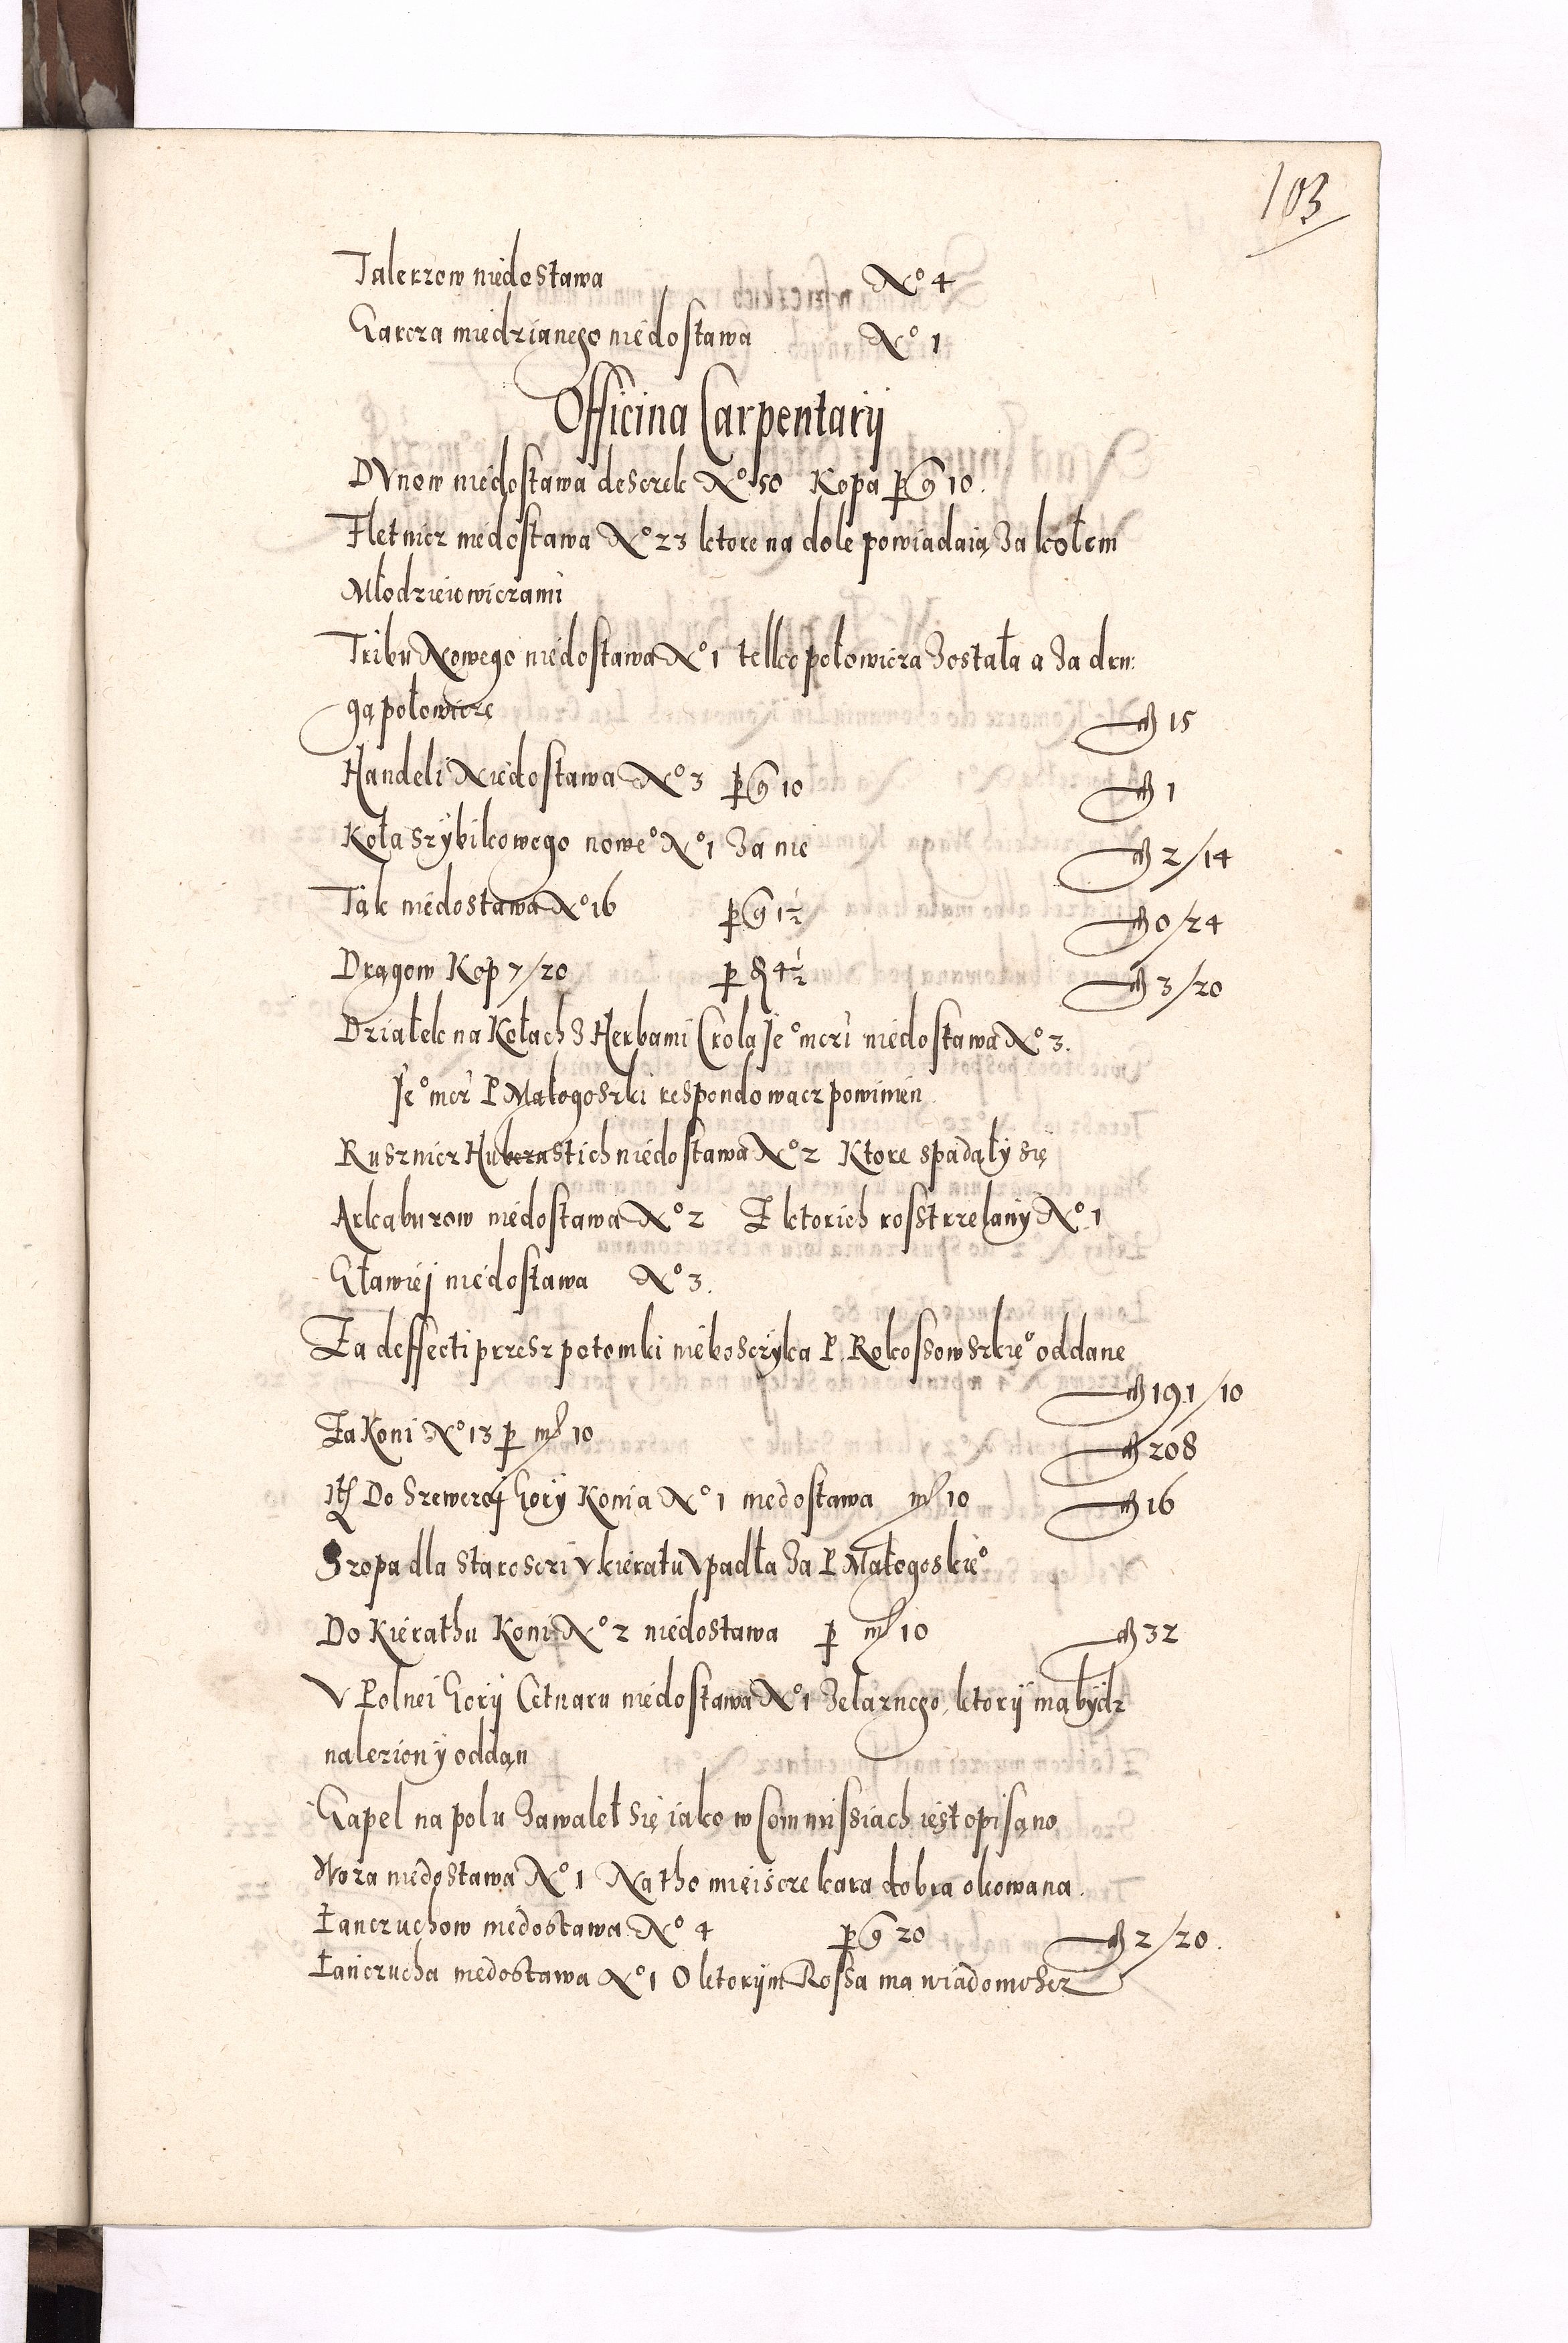 103
Talerzow niedostawa No 4
Garcza miedzianego niedostawa No 1
Officina Carpentarij
Dÿnow niedostawa desczek No 50 Kopa p g 10.
Fletnicz niedostawa No 23 ktore na dole powiadaią za kołem
Młodzieiowiczami
Tribu Nowego niedostawa No 1 telko połowicza została a za dru:
gą połowicze fl 15
Handeli Niedostawa No 3 p g 10 fl 1
Koła szÿbikowego nowego No 1 za nie fl 2/14
Tak niedostawa No 16 p g 1½ fl 0/24
Drągow Kop 7/20 p g 4½ fl 3/20
Działek na Kołach z Herbami Crola Jeo mczi niedostawa No 3.
Jeo mcz P Małogoszki respondowacz powinien
Rusznicz Hubernstich niedostawa No 2 Ktore spadałÿ się
Arkabuzow niedostawa No 2 Z ktorich rosstrzelanÿ No 1
Gławiej niedostawa No 3.
Za deffecti przesz potomki nieboszczÿka P. Rokossowszkieo oddane
fl 191/10
Za Koni No 13 p mr 10 fl 208
Itē Do Szewczej Gorÿ Konia No 1 niedostawa mr 10 fl 16
Szopa dla staroszci v kieratu vpadła za P Małogoskieo
Do Kierathu Koni No 2 niedostawa p mr 10 fl 32
V Polnei Gorÿ Cetnaru niedostawa No 1 Zelaznego, ktorÿ ma bÿdz
nalezion ÿ oddan
Gapel na polu zawaleł się iako w Commissiach iest opisano
Woza niedostawa No 1 Na tho mieiscze kara dobra okowana.
Łanczuchow niedostawa No 4 p g 20 fl 2/20.
Łanczucha niedostawa No 1 O ktorÿm Rossa ma wiadomoscz